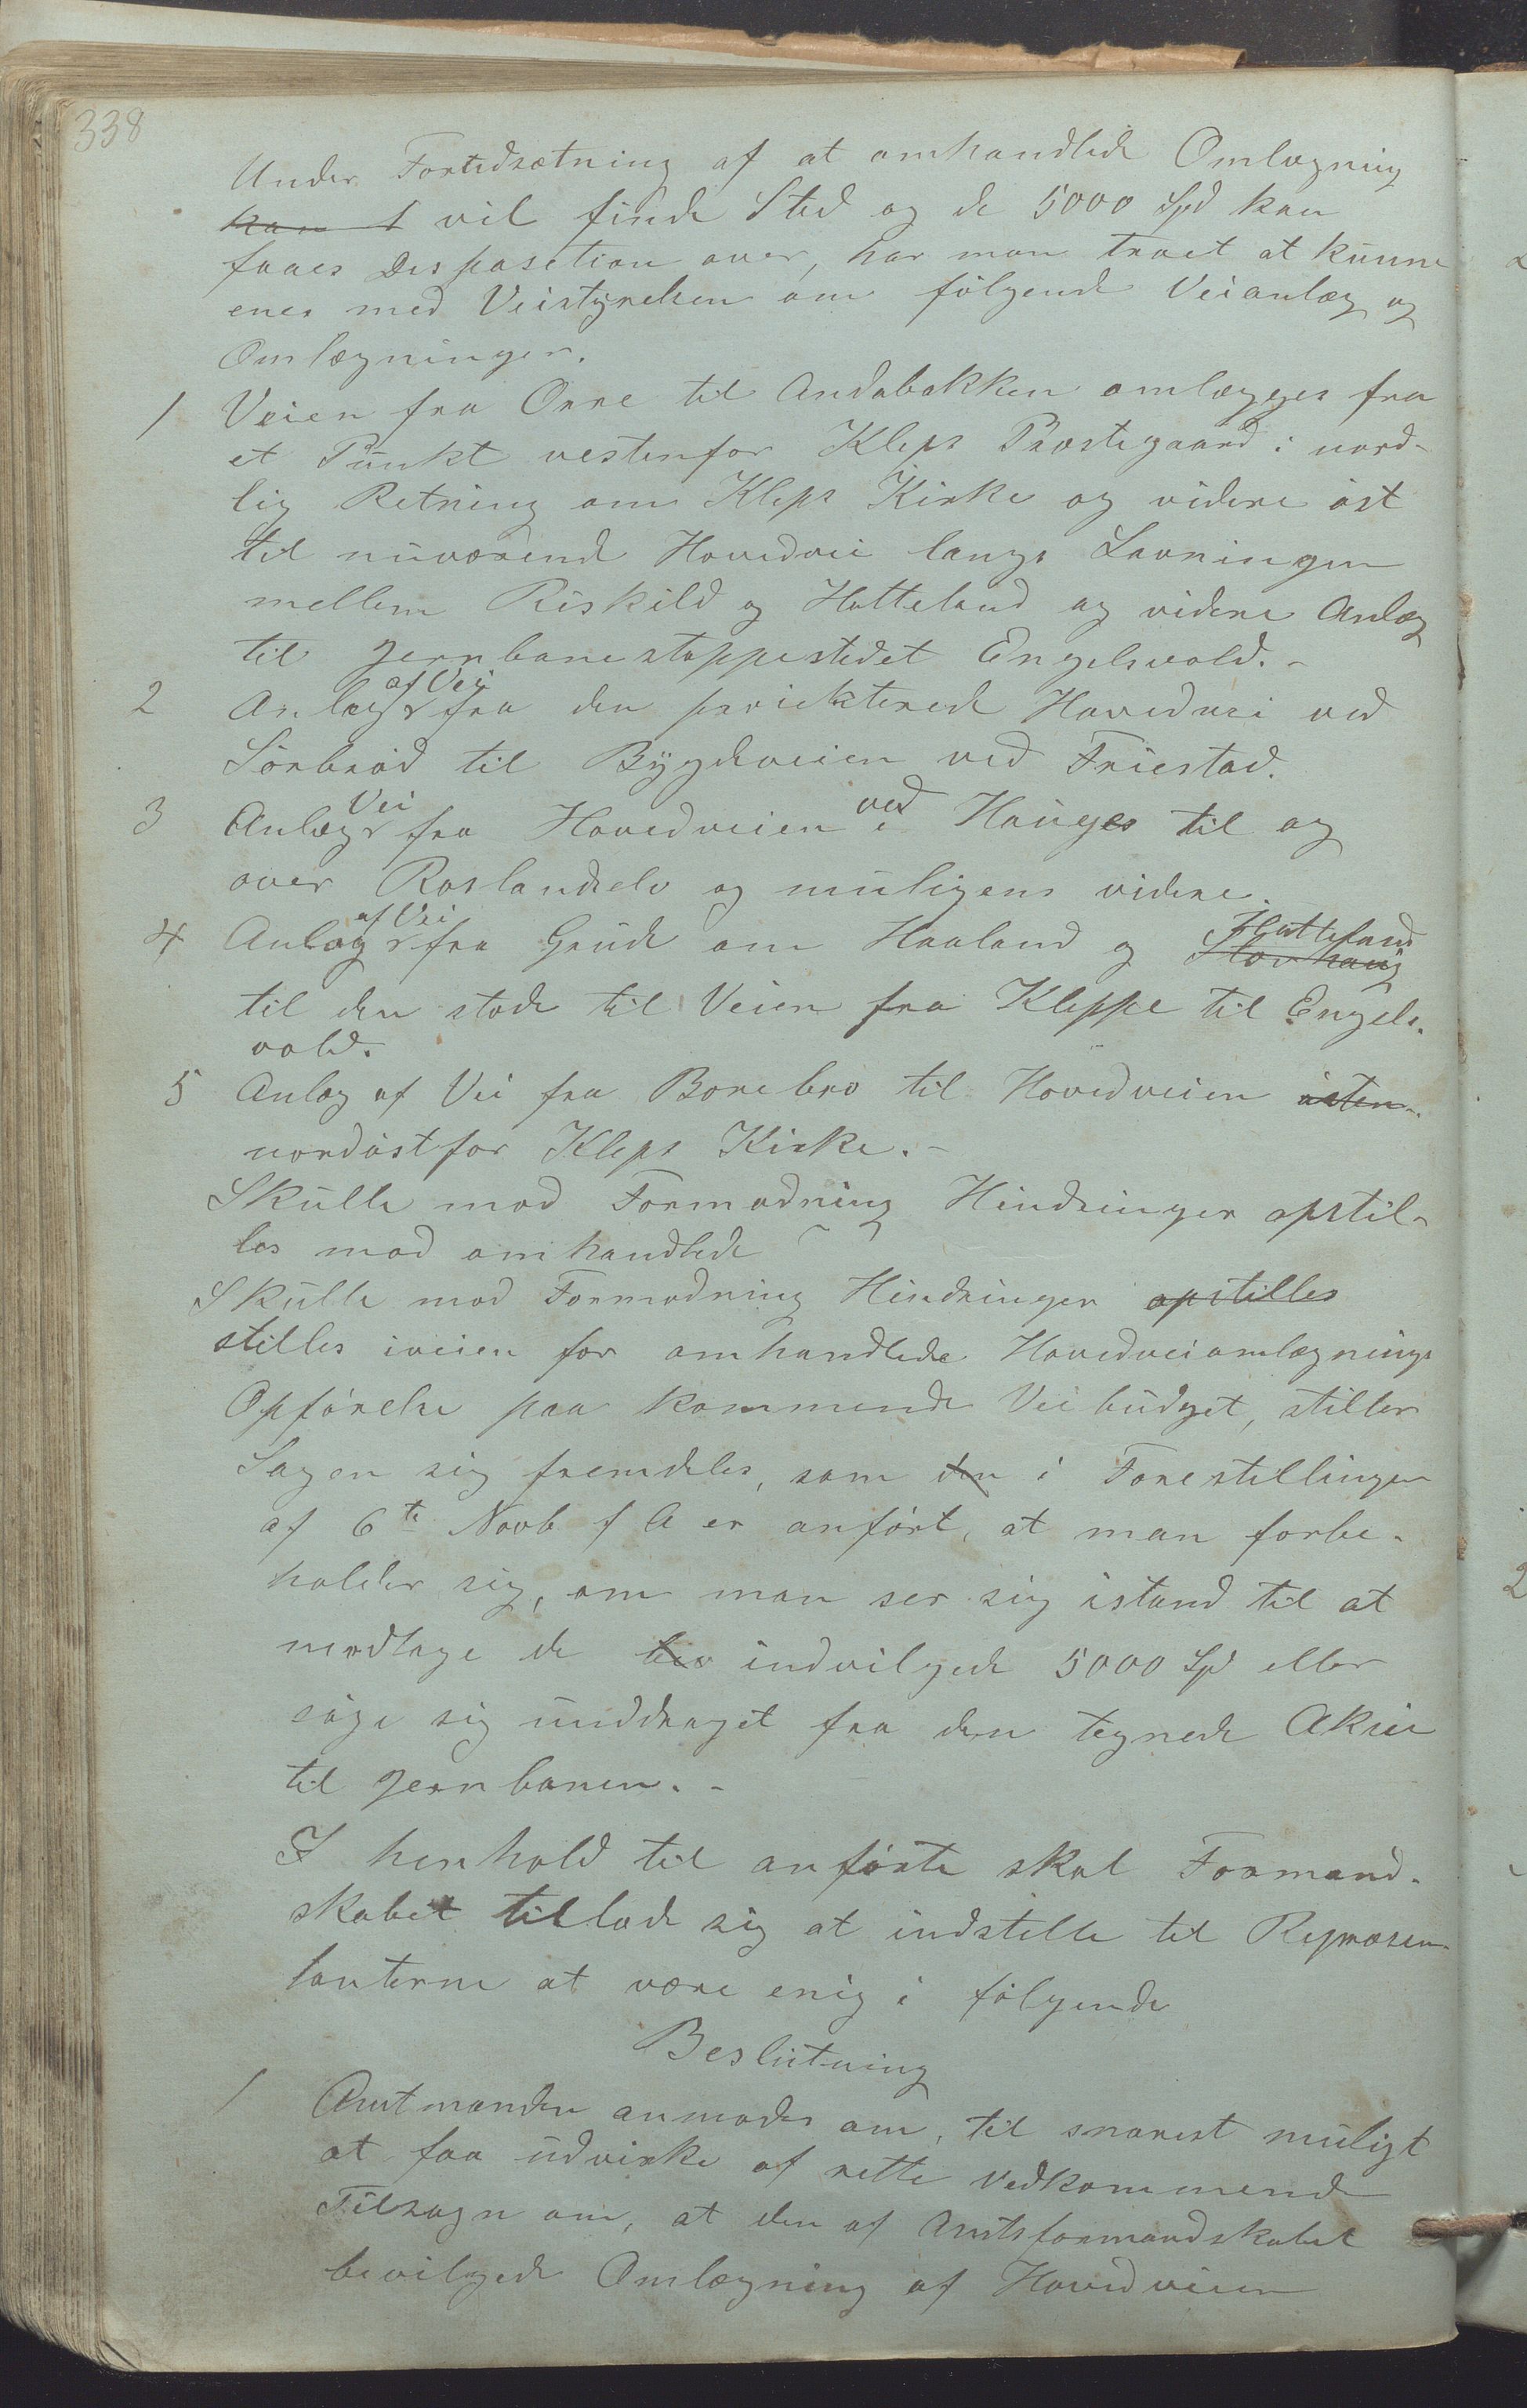 338
Under Forudsætning af at omhandlede Omlægning
kan f vil finde Sted og de 5000 Spd kan
faaes Disposition over, har man troet at kunne
enes med Veistyrelsen om følgende Veianlæg og
Omlægninger.
1 Veien fra Orre til Andabakken omlægges fra
et Punkt vestenfor Kleps Præstegaard i nord-
lig Retning om Kleps Kirke og videre øst
til nuværende Hovedvei langs Lavningen
mellem Riskild og Hatteland og videre Anlæg
til Jernbanestoppestedet Engelsvold. -
2 Anlæg af Vei fra den proiekterede Hovedvei ved
Sørbrød til Bygdeveien ved Friestad.
3 Anlæg Vei fra Hovedveien ved Hauges til og
over Roslandselv og muligens videre.
4 Anlæg af Vei fra Grude om Haaland og Slovhaug Hatteland
til den støde til Veien fra Kleppe til Engels-
vold.
5 Anlæg af Vei fra Borebro til Hovedveien østen-
nordøstfor Kleps Kirke. -
Skulle mod Formodning Hindringer opstil-
les mod omhandlede
Skulle mod Formodning Hindringer opstilles
stilles iveien for omhandlede Hovedveiomlægnings
Opførelse paa kommende Veibudget, stiller
Sagen sig fremdeles, som den i Forestillingen
af 6te Novb f A er anført, at man forbe-
holder sig, om man ser sig istand til at
modtage de bev indvilgede 5000 Spd eller
søge sig unddraget fra den tegnede Aksie
til Jernbanen. -
I henhold til anførte skal Formand-
skabet tillade sig at indstille til Repræsen-
tanterne at være enig i følgende
Beslutning
1 Amtmanden anmodes om, til snarest muligt
at faa udvirke af rette Vedkommende
Tilsagn om, at den af Amtsformandskabet
bevilgede Omlægning af Hovedveien